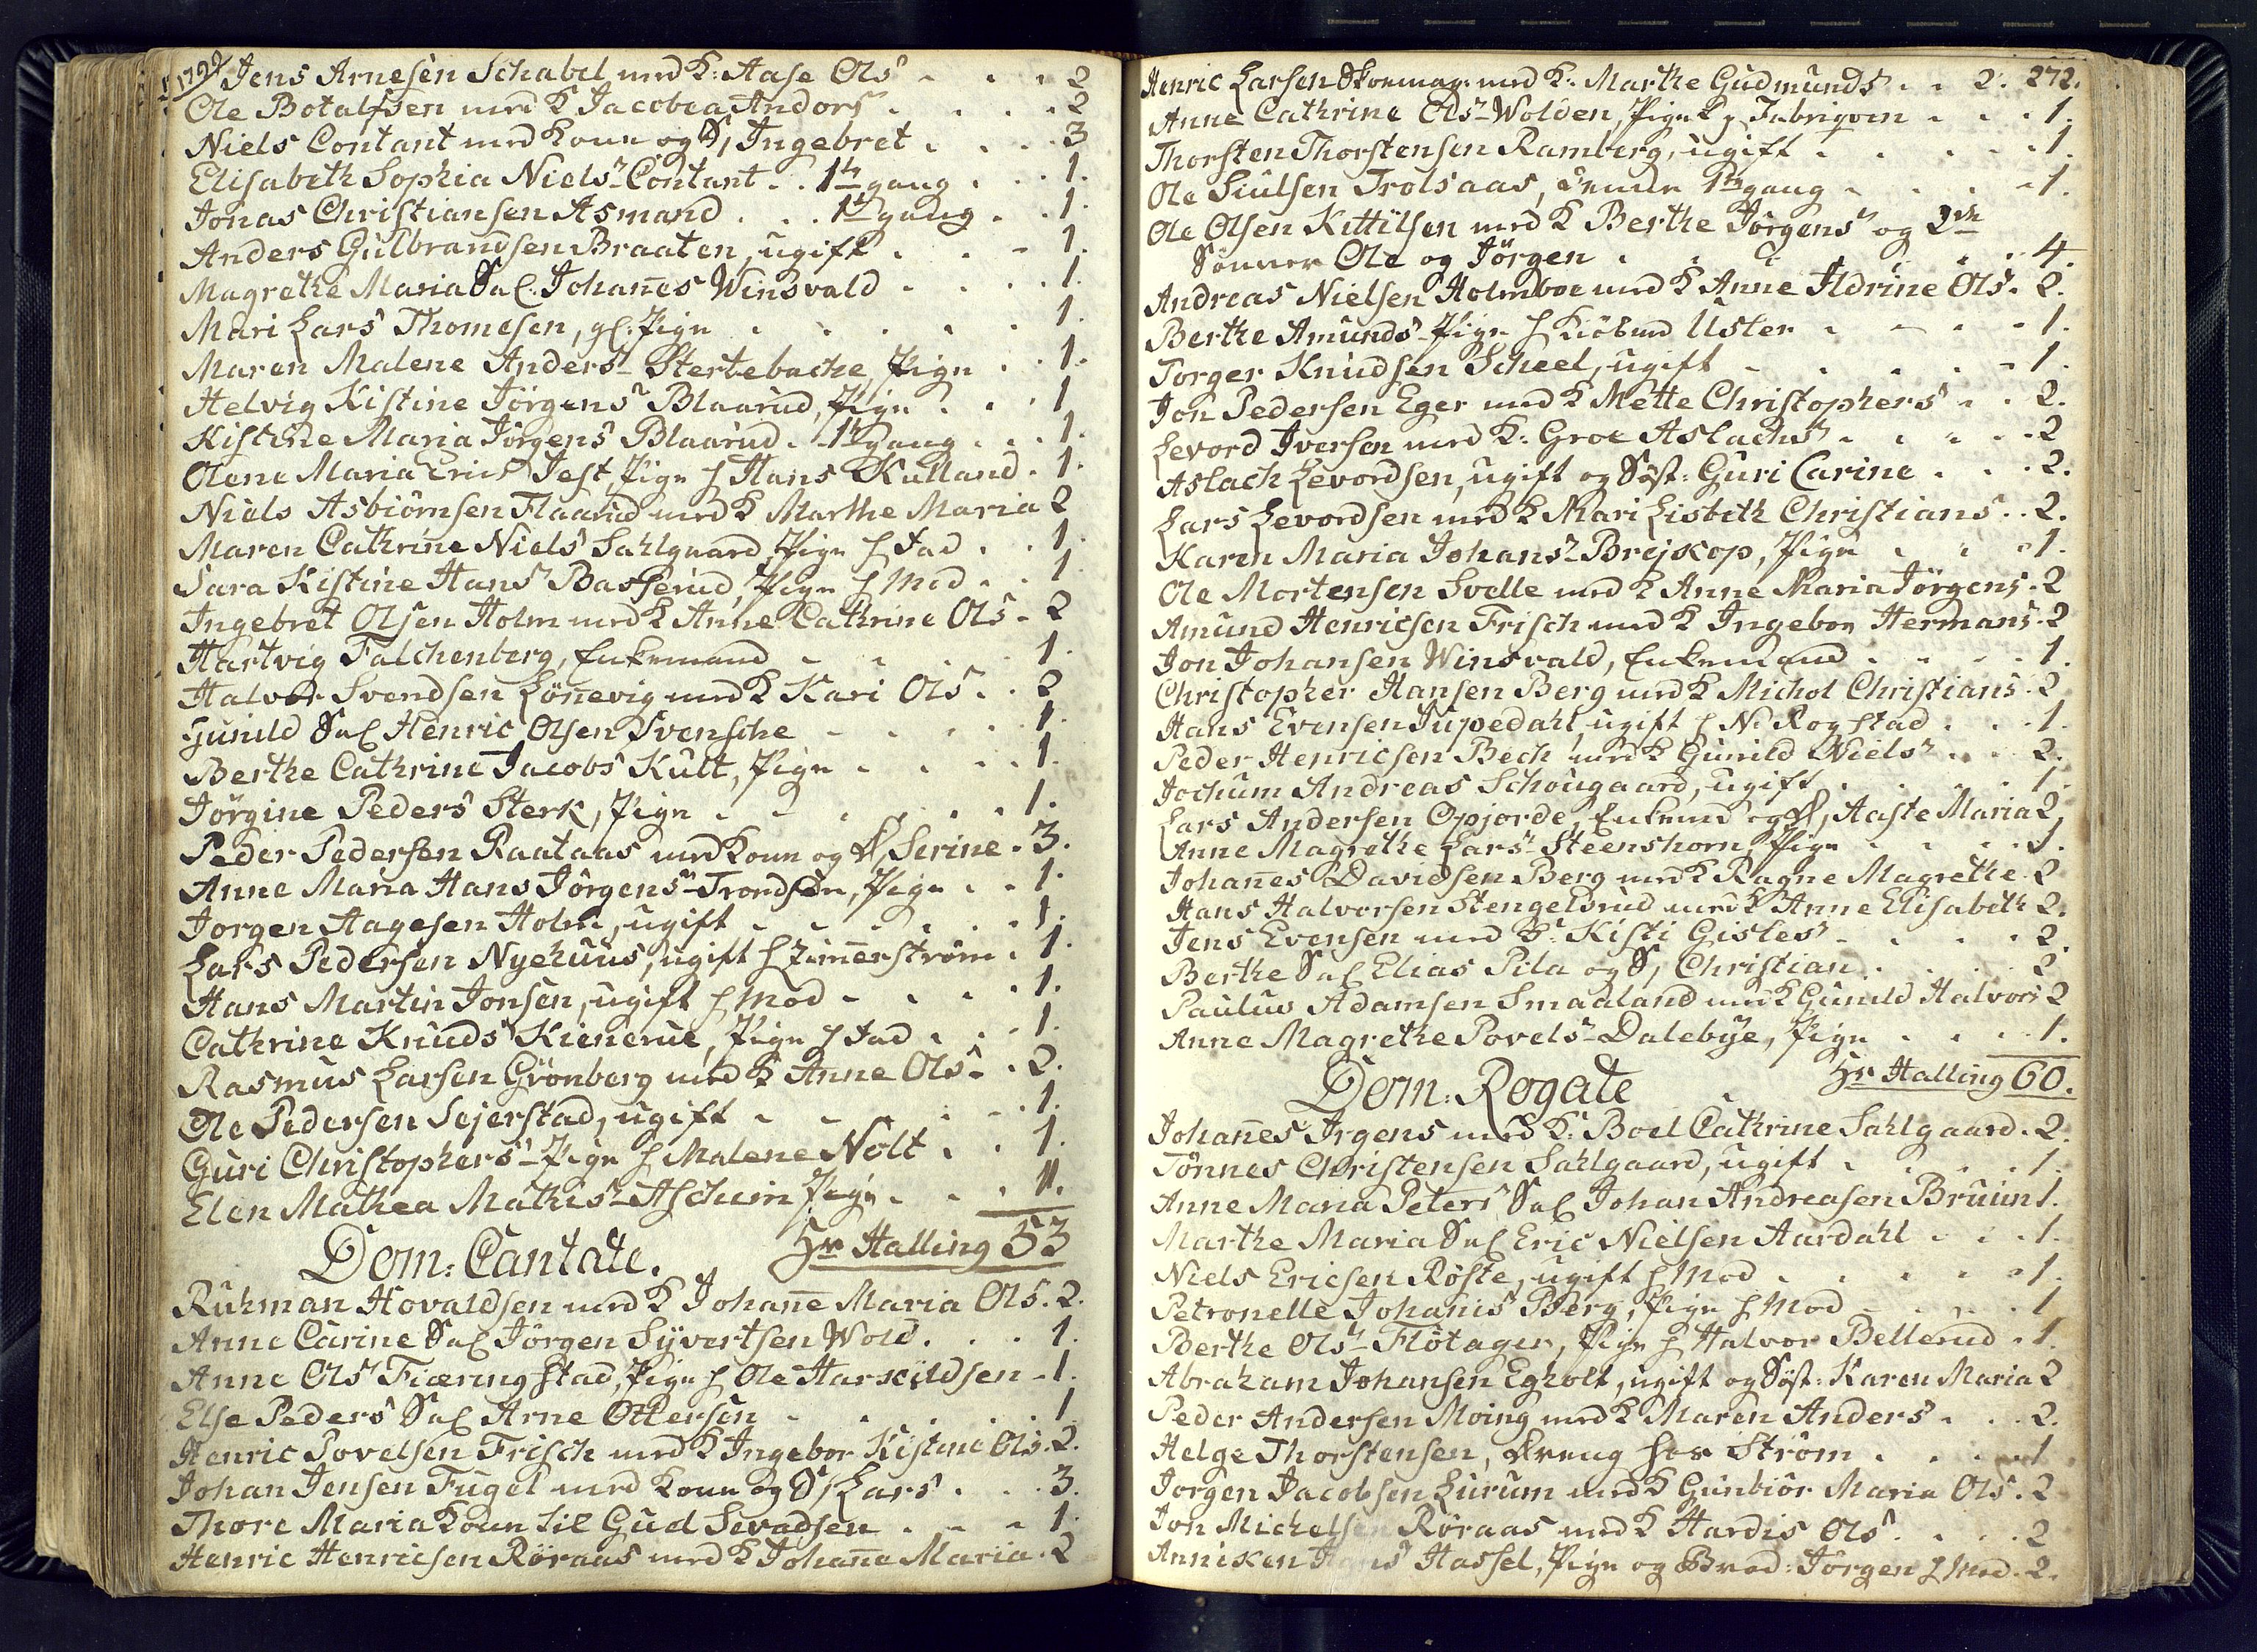 1799 Jens Arnesen Schabel med K: Aase Ols - - - 2
Ole Botalfsen med K Jacobea Andors - - - 2
Niels Contant med Kone og S, Ingebret - - - 3
Elisabeth Sophia Niels Contant - - 1te gang - - 1.
Jonas Christiansen Asmand - - 1te gang - - 1.
Anders Gulbrandsen Braaten, ugift - - - 1.
Magrethe Maria Sal. Johannes Winsvald - - - 1.
Mari Lars Thomesen, gl. Pige - - - 1.
Maren Malene Anders Stertebache, Pige - - 1.
Helvig Kistine Jörgens Blaarud, Pige - - - 1
Kistine Maria Jörgens Blaarud - 1te gang - - 1.
Olene Maria Erics Jest, Pige h Hans Kulland - 1.
Niels Asbiörnsen Flaarud med K Marthe Maria 2
Maren Cathrine Niels Sahlgaard, Pige h Fad - - 1.
Sara Kistine Hans Basserud, Pige h Mod - - 1
Ingebret Olsen Holm med K Anne Cathrine Ols - 2
Hartvig Falchenberg, Enkemand - - - 1.
Halvor Svendsen Lönnevig med K Kari Ols - - 2
Gunild Sal Henric Olsen Svensche - - - 1.
Berthe Cathrine Jacobs Kult, Pige - - - 1.
Jörgine Peders Sterk, Pige - - - 1.
Peder Pedersen Raataas med Kone og D, Serine - 3.
Anne Maria Hans Jörgens Trondsen, Pige - - 1.
Jorgen Aagesen Holm, ugift - - - 1.
Lars Pedersen Nyehuus, ugift h Zimmerström - 1.
Hans Martin Jonsen, ugift h Mod - - - 1.
Cathrine Knuds Kienerue, Pige h Fad - - - 1.
Rasmus Larsen Grönberg med K Anne Ols - - 2.
Ole Pedersen Sejerstad, ugift - - - 1.
Guri Christophers - Pige h Malene Nolt - - 1.
Elen Mathea Mathis Aschim Pige - - - 1.
Dom: Cantate. Hr Halling 53
Ruhman Hovaldsen med K Johanne Maria Ols. 2.
Anne Carine Sal Jörgen Syvertsen Wold - - - 1.
Anne Ols Fiæringstad, Pige h Ole Harsildsen - 1.
Else Peders Sal Arne Ottersen - - - 1
Henric Povelsen Frisch med K Ingebor Kistine Ols. 2.
Johan Jensen Fugel med Kone og S, Lars - - - 3.
Thore Maria Kone til Gud Sevadsen - - - 1.
Henric Henricsen Röraas med K Johanne Maria - 2
Henric Larsen Skomag: med K: Marthe Gudmunds - - 2. 272.
Anne Cathrine Ols Wolden, Pige - - - 1.
Thorsten Thorstensen Ramberg, ugift - - - 1.
Ole Siulsen Trolsaas, 1te gang - - - 1.
Ole Olsen Kittilsen med K Berthe Jörgens og 2de
Sönner Ole og Jörgen - - - 4.
Andreas Nielsen Holmboe med K Anne Aldrine Ols. 2.
Berthe Amunds - Pige h Uster - - - 1.
Torger Knudsen Scheel, ugift - - - 1.
Jon Pedersen Eger med K Mette Christophers - - 2.
Levord Iversen med K: Groe Aslachs - - - 2
Aslach Levordsen, ugift og Söst: Guri Carine - - - 2.
Lars Levordsen med K Mari Lisbeth Christians - - 2.
Karen Maria Johans Brejskop, Pige - - - 1.
Ole Mortensen Svelle med K Anne Maria Jörgens - 2
Amund Henricsen Frisch med K Ingebor Hermans - 2
Jon Johansen Winsvald, Enkemand - - - 1.
Christopher Hansen Berg med K Michol Christians - 2
Hans Evensen Jupedahl, ugift h N. Rogstad - - - 1.
Peder Henricsen Bech med K Gunild Niels - - 2.
Jochum Andreas Schougaard, ugift - - - 1.
Lars Andersen Opjorde, Enkemd og D, Aaste Maria 2.
Anne Magrethe Lars Steenshorn, Pige - - - 1.
Johannes Davidsen Berg med K Ragne Magrethe - 2
Hans Halvorsen Stengelsrud med K Anne Elisabeth 2.
Jens Evensen med K: Kisti Gisles - - - 2.
Berthe Sal Elias Pila og S, Christian - - - 2
Paulus Adamsen Smaaland med K Gunild Halvors 2
Anne Magrethe Povels Dalebye, Pige - - - 1.
Dom: Rogate Hr Halling 60.
Johannes Irgens med K: Boel Cathrine Sahlgaard - 2.
Tönnes Christensen Sahlgaard, ugift - - - 1.
Anne Maria Peters Sal Johan Andreasen Bruun 1.
Marthe Maria Sal Eric Nielsen Aardahl - - - 1.
Niels Ericsen Röste, ugift h Mod - - - 1.
Petronelle Johanis Berg, Pige h Mod - - - 1
Berthe Ols Flötager, Pige h Halvor Bellerud - 1.
Abraham Johansen Egholt, ugift og Söst: Karen Maria 2
Peder Andersen Moing med K Maren Anders - - - 2.
Helge Thorstensen, dreng hos Ström - - - 1
Jorgen Jacobsen Lurum med K Gunbiör Maria Ols. 2
Jon Michelsen Röraas med K Hardis Ols - - - 2
Anniken Hans Hassel, Pige og Brod: Jörgen h Mod. 2.